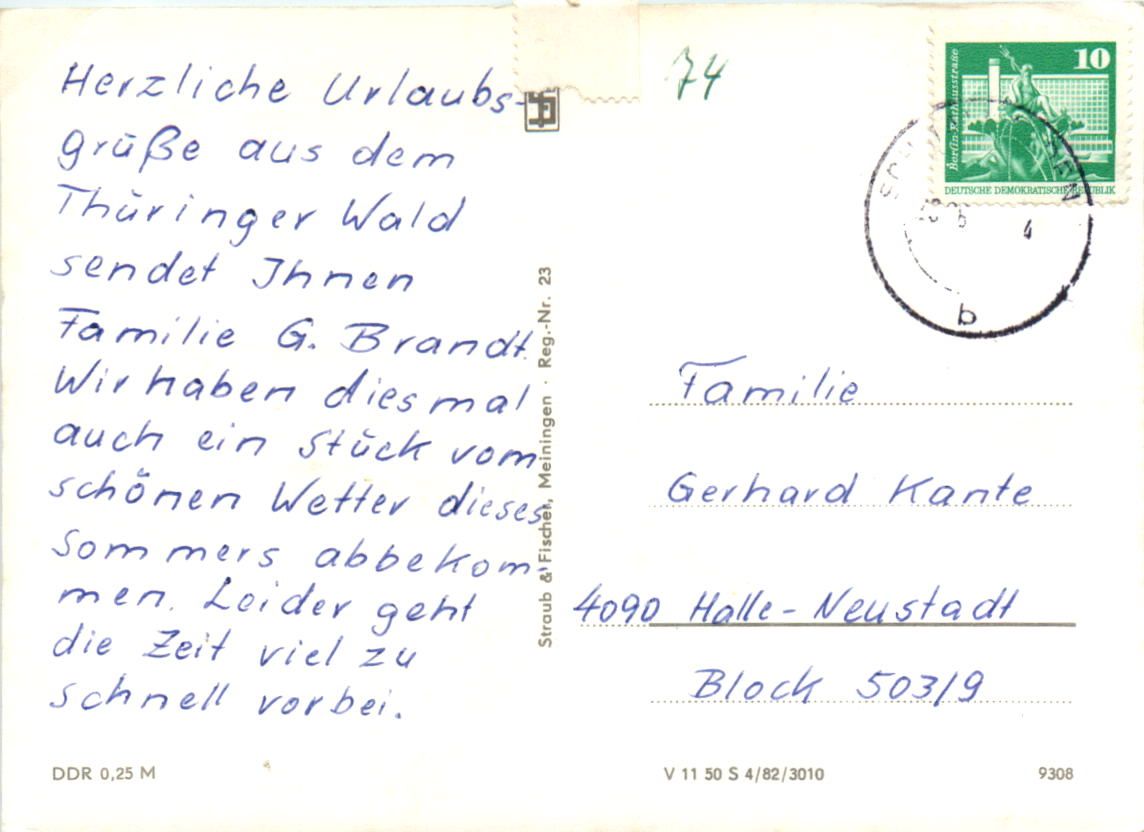 Herzliche Urlaubs-
grüße aus dem
Thüringer Wald
sendet Ihnen
Familie G. Brandt.
Wir haben diesmal
auch ein Stück vom
schönen Wetter dieses
Sommers abbekom-
men. Leider geht
die Zeit viel zu
schnell vorbei.
DDR 0,25 M
Straub & Fischer, Meiningen · Reg.-Nr. 23
74
10
Berlin-Rathausstraße
DEUTSCHE DEMOKRATISCHE REPUBLIK
b
Familie
Gerhard Kante
4090 Halle-Neustadt
Block 503/9
V 11 50 S 4/82/3010
9308